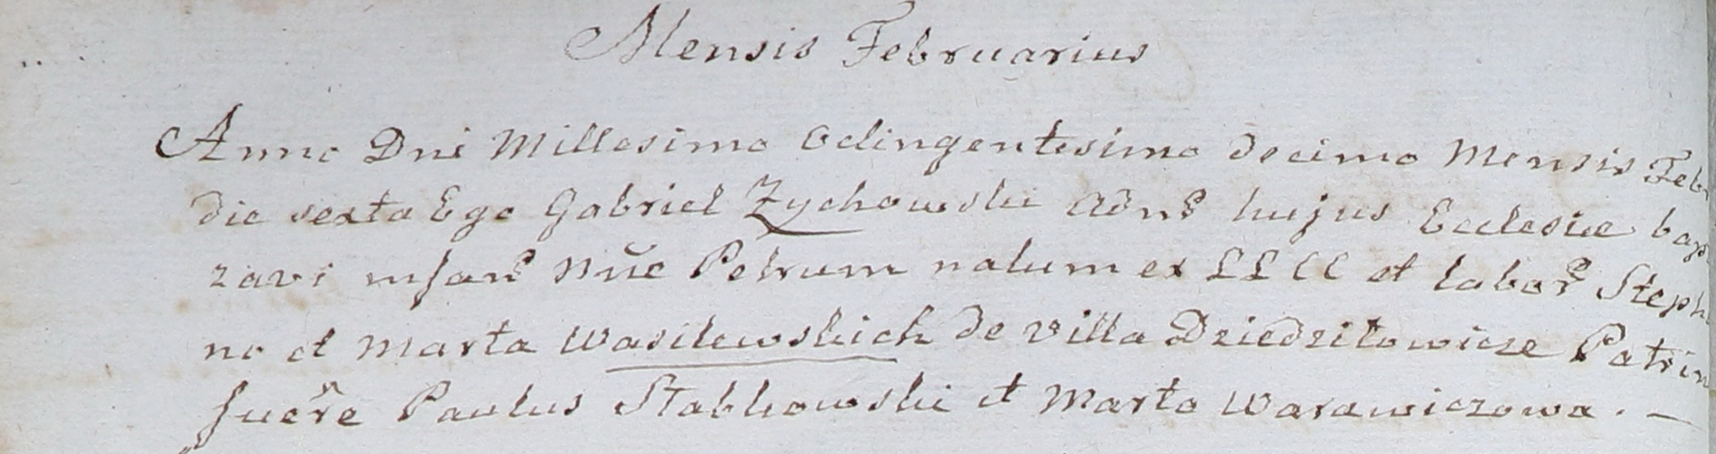 Mensis Februarius
Anno Dni Millesimo Octingentesimo decimo Mensis Febr
die sexta Ego Gabriel Zychowski Adns hujus Ecclesiæ bapt
zavi infan nũe Petrum natum ex LLCC et labor Steph
no et Marta Wasilewskich de villa Dziedziłowicze Patrin
fuere Paulus Stabkowski et Marta Warawiczowa. —